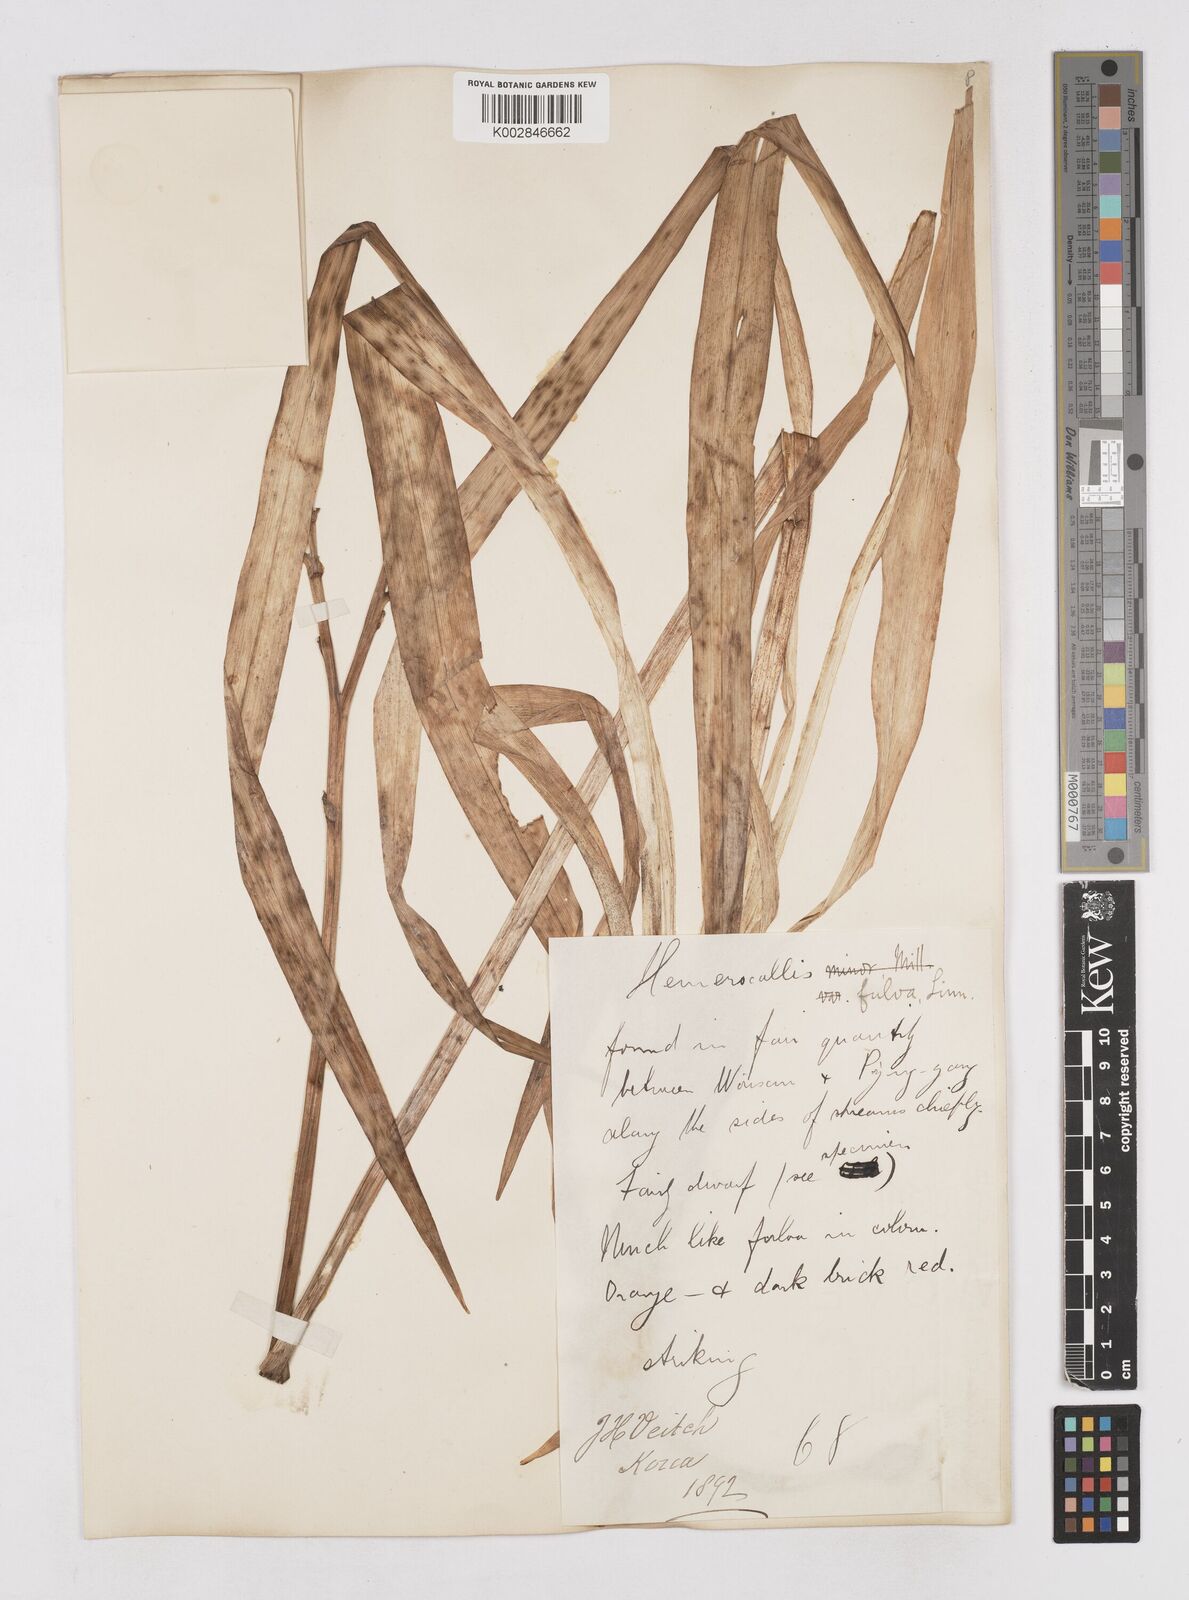 ROYAL BOTANIC GARDENS KEW
K002846662
8
Hemerocallis minor, Mill.
var. fulva, Linn.
found in fair quantity
between Wonsan & Pyng-yang
along the sides of streams chiefly.
Fairly dwarf (see specimen)
Much like fulva in colour.
Orange - & dark brick red.
striking
JH Veitch
Korea
1892
68
inches
Density
Don Williams
centimeters
M000767
Royal Botanic Gardens
Kew
0 1 2 3 4 5 6 7 8 9 10
cm
copyright reserved